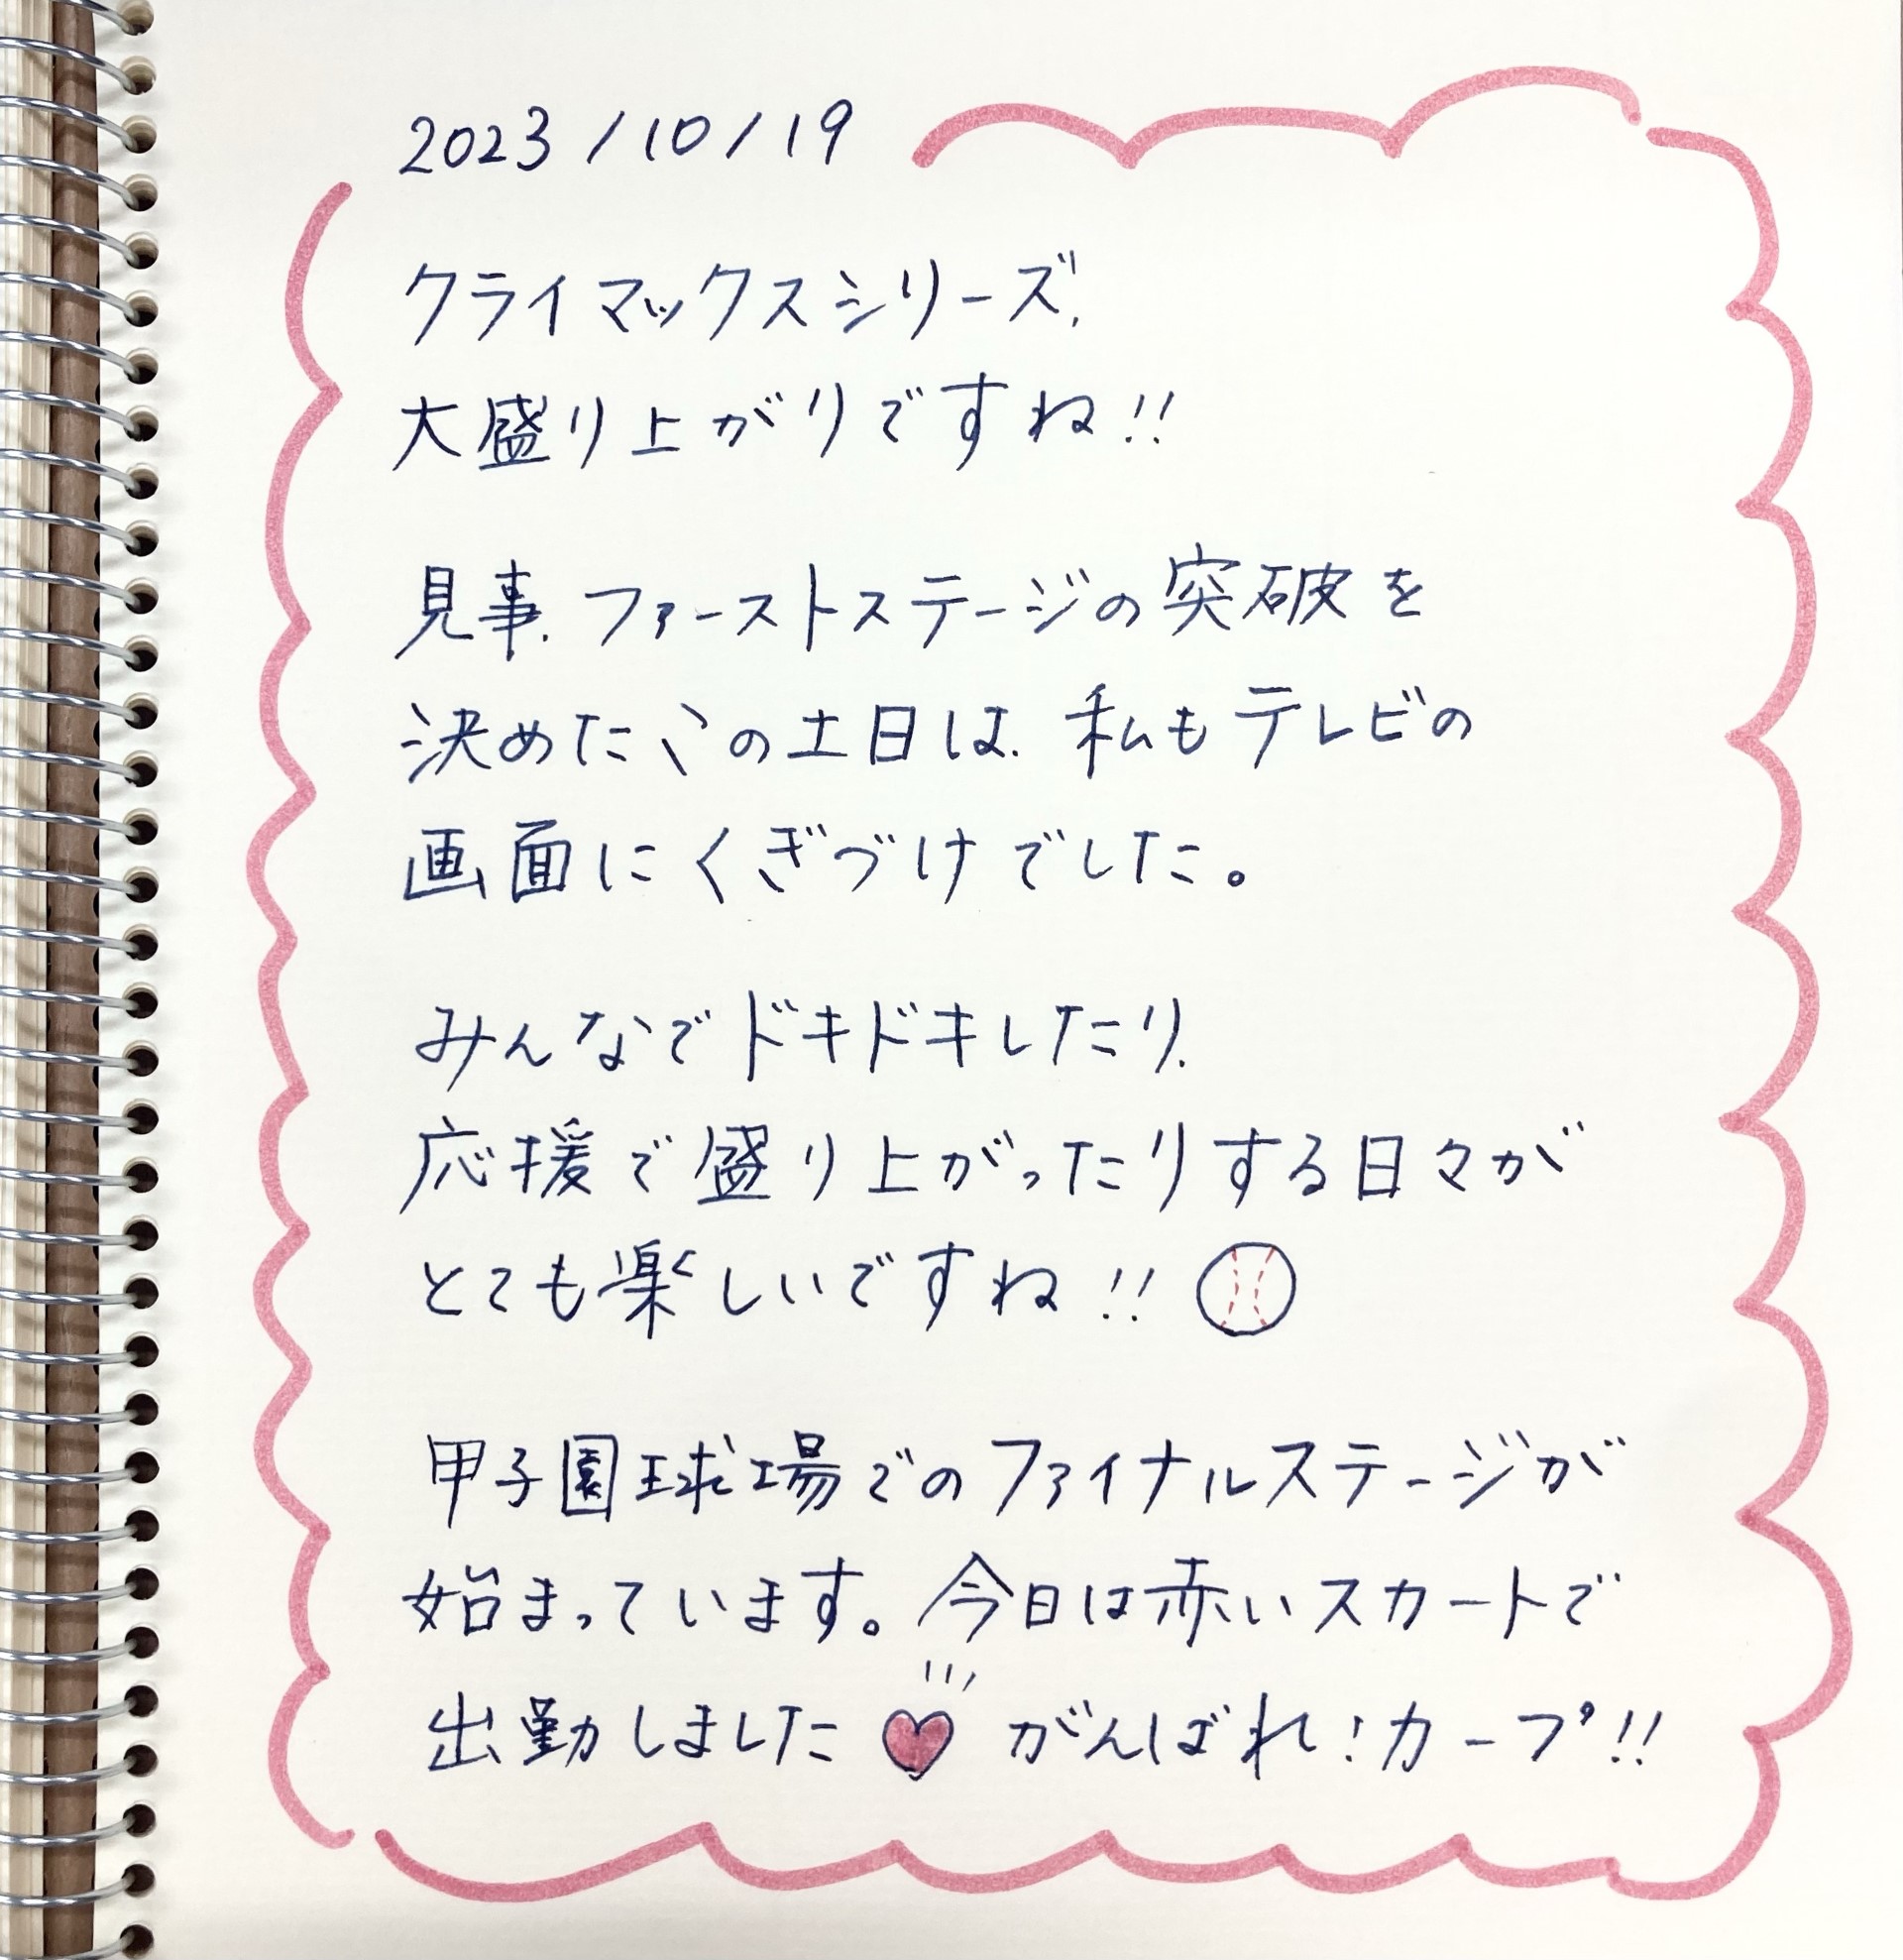 2023/10/19
クライマックスシリーズ、
大盛り上がりですね!!
見事、ファーストステージの突破を
決めたこの土日は、私もテレビの
画面にくぎづけでした。
みんなでドキドキしたり、
応援で盛り上がったりする日々が
とても楽しいですね!!
甲子園球場でのファイナルステージが
始まっています。今日は赤いスカートで
出勤しました がんばれ!カープ!!